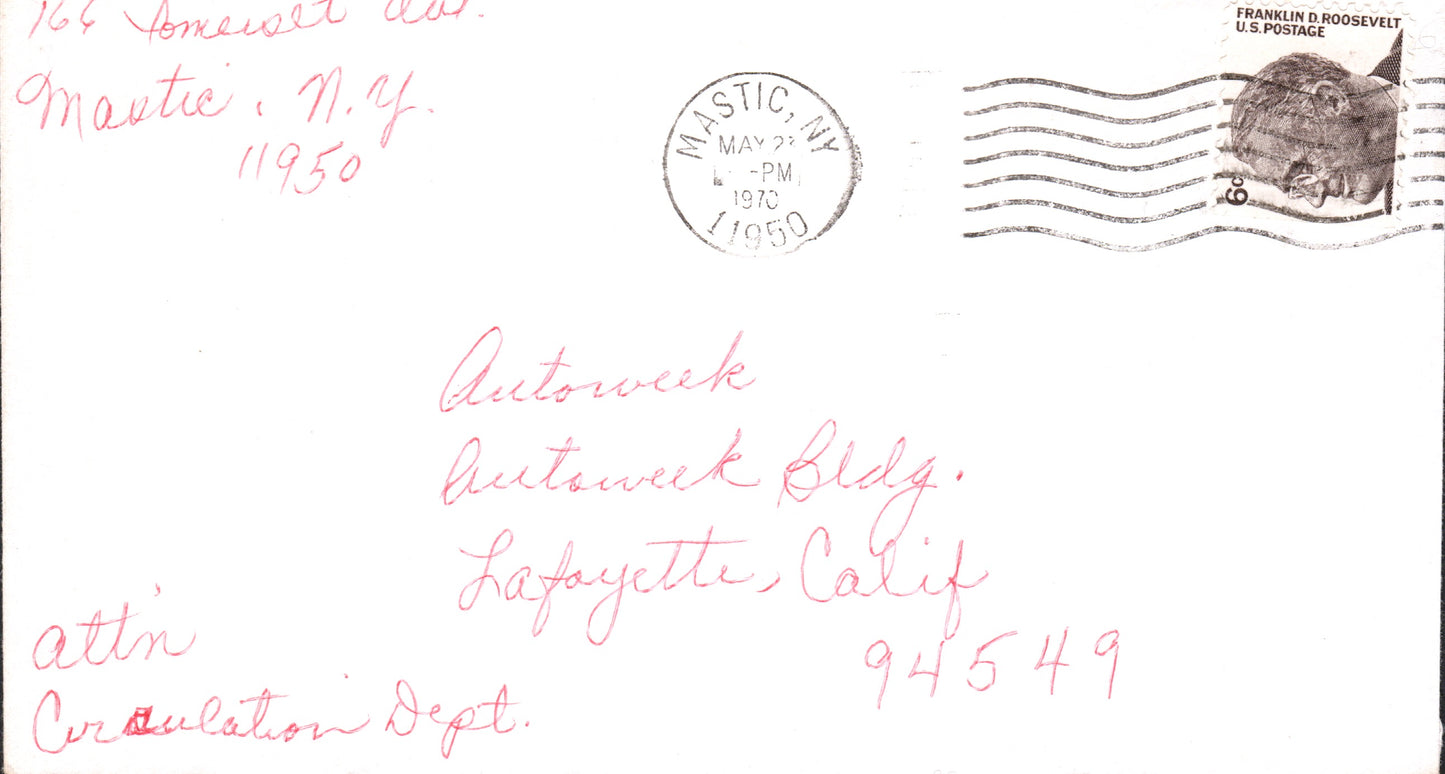 166 Somerset Ave.
Mastic, N.Y.
11950
MASTIC, NY
MAY
-PM
1970
11950
FRANKLIN D. ROOSEVELT
U.S. POSTAGE
6c
Autoweek
Autoweek Bldg.
Lafayette, Calif
94549
attn
Circulation Dept.